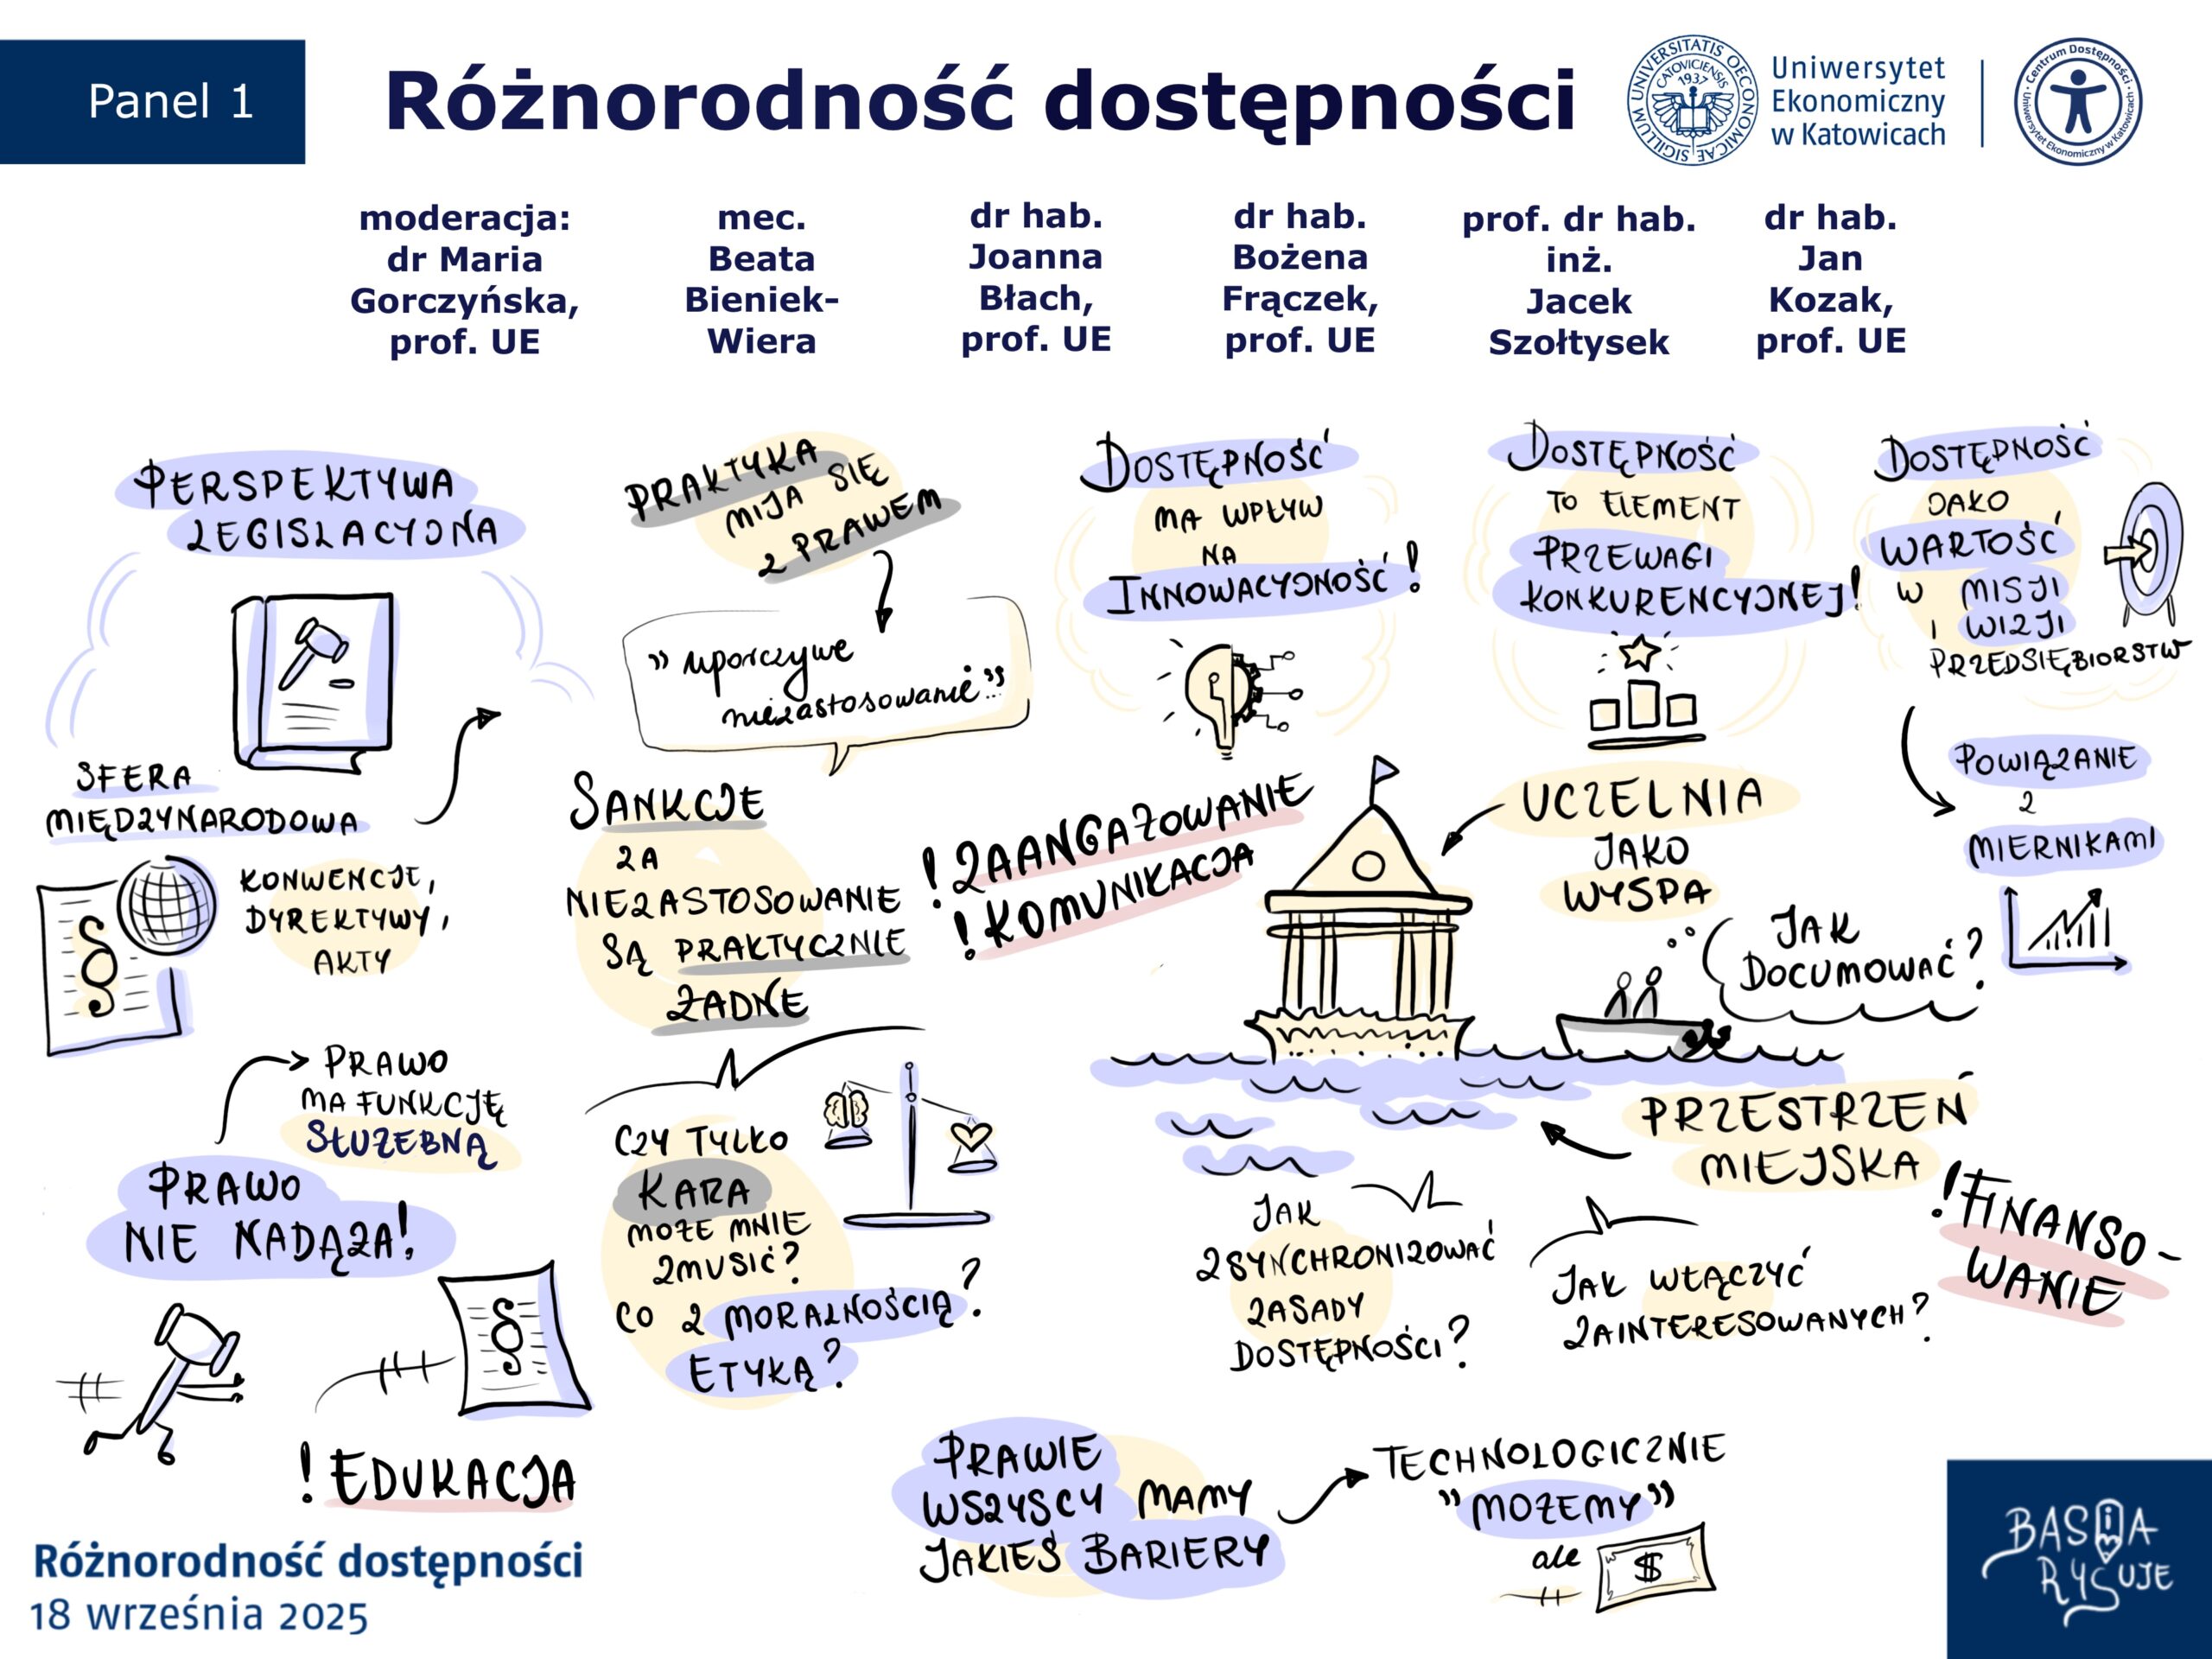 Panel 1
Różnorodność dostępności
SIGILLUM UNIVERSITATIS OECONOMICAE
CATOVICIENSIS
1937
Uniwersytet
Ekonomiczny
w Katowicach
Centrum Dostępności
Uniwersytet Ekonomiczny w Katowicach
moderacja:
dr Maria
Gorczyńska,
prof. UE
mec.
Beata
Bieniek-
Wiera
dr hab.
Joanna
Błach,
prof. UE
dr hab.
Bożena
Frączek,
prof. UE
prof. dr hab.
inż.
Jacek
Szołtysek
dr hab.
Jan
Kozak,
prof. UE
PERSPEKTYWA
LEGISLACYJNA
SFERA
MIĘDZYNARODOWA
KONWENCJE,
DYREKTYWY,
AKTY
§
PRAWO
MA FUNKCJĘ
SŁUŻEBNĄ
PRAWO
NIE NADĄŻA!
§
! EDUKACJA
PRAKTYKA
MIJA SIĘ
Z PRAWEM
„uporczywe
niezastosowanie..."
SANKCJE
ZA
NIEZASTOSOWANIE
SĄ PRAKTYCZNIE
ŻADNE
CZY TYLKO
KARA
MOŻE MNIE
ZMUSIĆ?
CO Z MORALNOŚCIĄ?
ETYKĄ?
DOSTĘPNOŚĆ
MA WPŁYW
NA
INNOWACYJNOŚĆ!
! ZAANGAŻOWANIE
! KOMUNIKACJA
DOSTĘPNOŚĆ
TO ELEMENT
PRZEWAGI
KONKURENCYJNEJ!
UCZELNIA
JAKO
WYSPA
JAK
DOCUMOWAĆ?
PRZESTRZEŃ
MIEJSKA
JAK
ZSYNCHRONIZOWAĆ
ZASADY
DOSTĘPNOŚCI?
JAK WŁĄCZYĆ
ZAINTERESOWANYCH?
DOSTĘPNOŚĆ
JAKO
WARTOŚĆ
W MISJI
I WIZJI
PRZEDSIĘBIORSTW
POWIĄZANIE
Z
MIERNIKAMI
! FINANSO-
WANIE
PRAWIE
WSZYSCY MAMY
JAKIEŚ BARIERY
TECHNOLOGICZNIE
"MOŻEMY"
ale
$
Różnorodność dostępności
18 września 2025
BASIA
RYSUJE